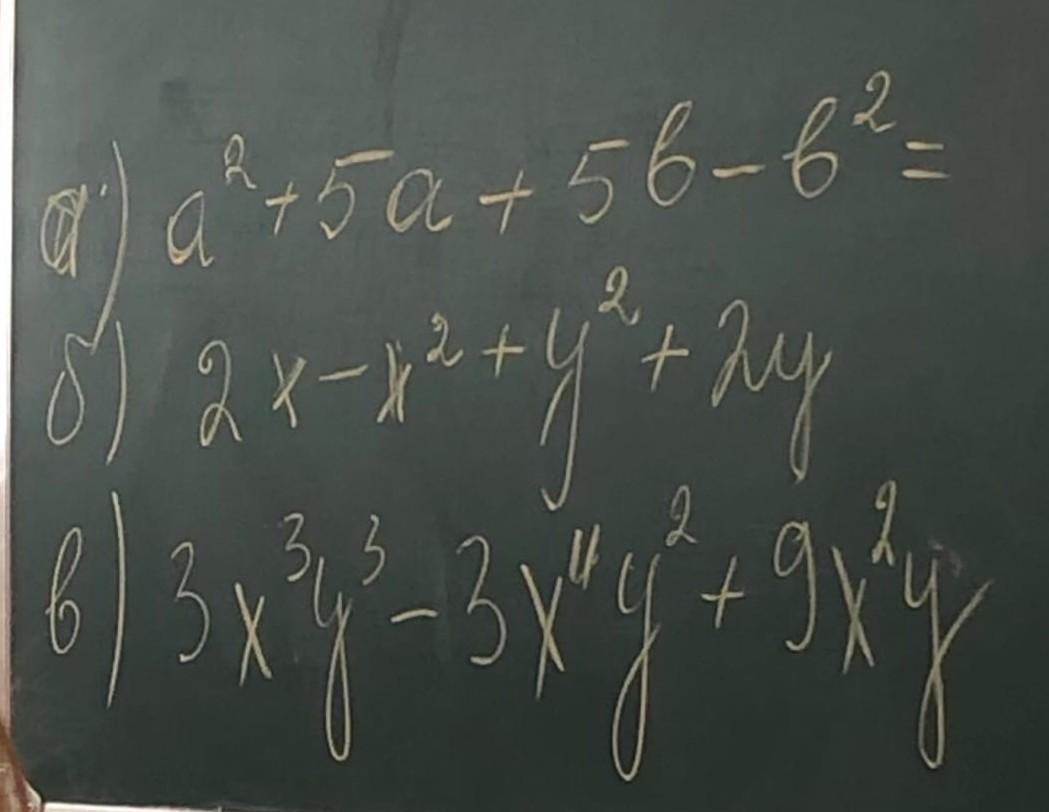 а) a² + 5a + 5b - b² =
б) 2x - x² + y² + 2y
в) 3x³y³ - 3x⁴y² + 9x²y